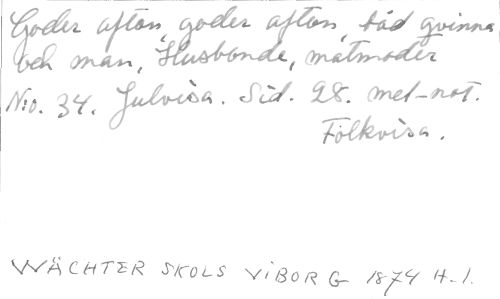 Goder afton, goder afton, båd qvinna
och man, Husbonde, matmoder
N:o. 34. Julvisa. Sid. 28. mel-not.
Folkvisa.
WÄCHTER SKOLS VIBORG 1874 H-1.